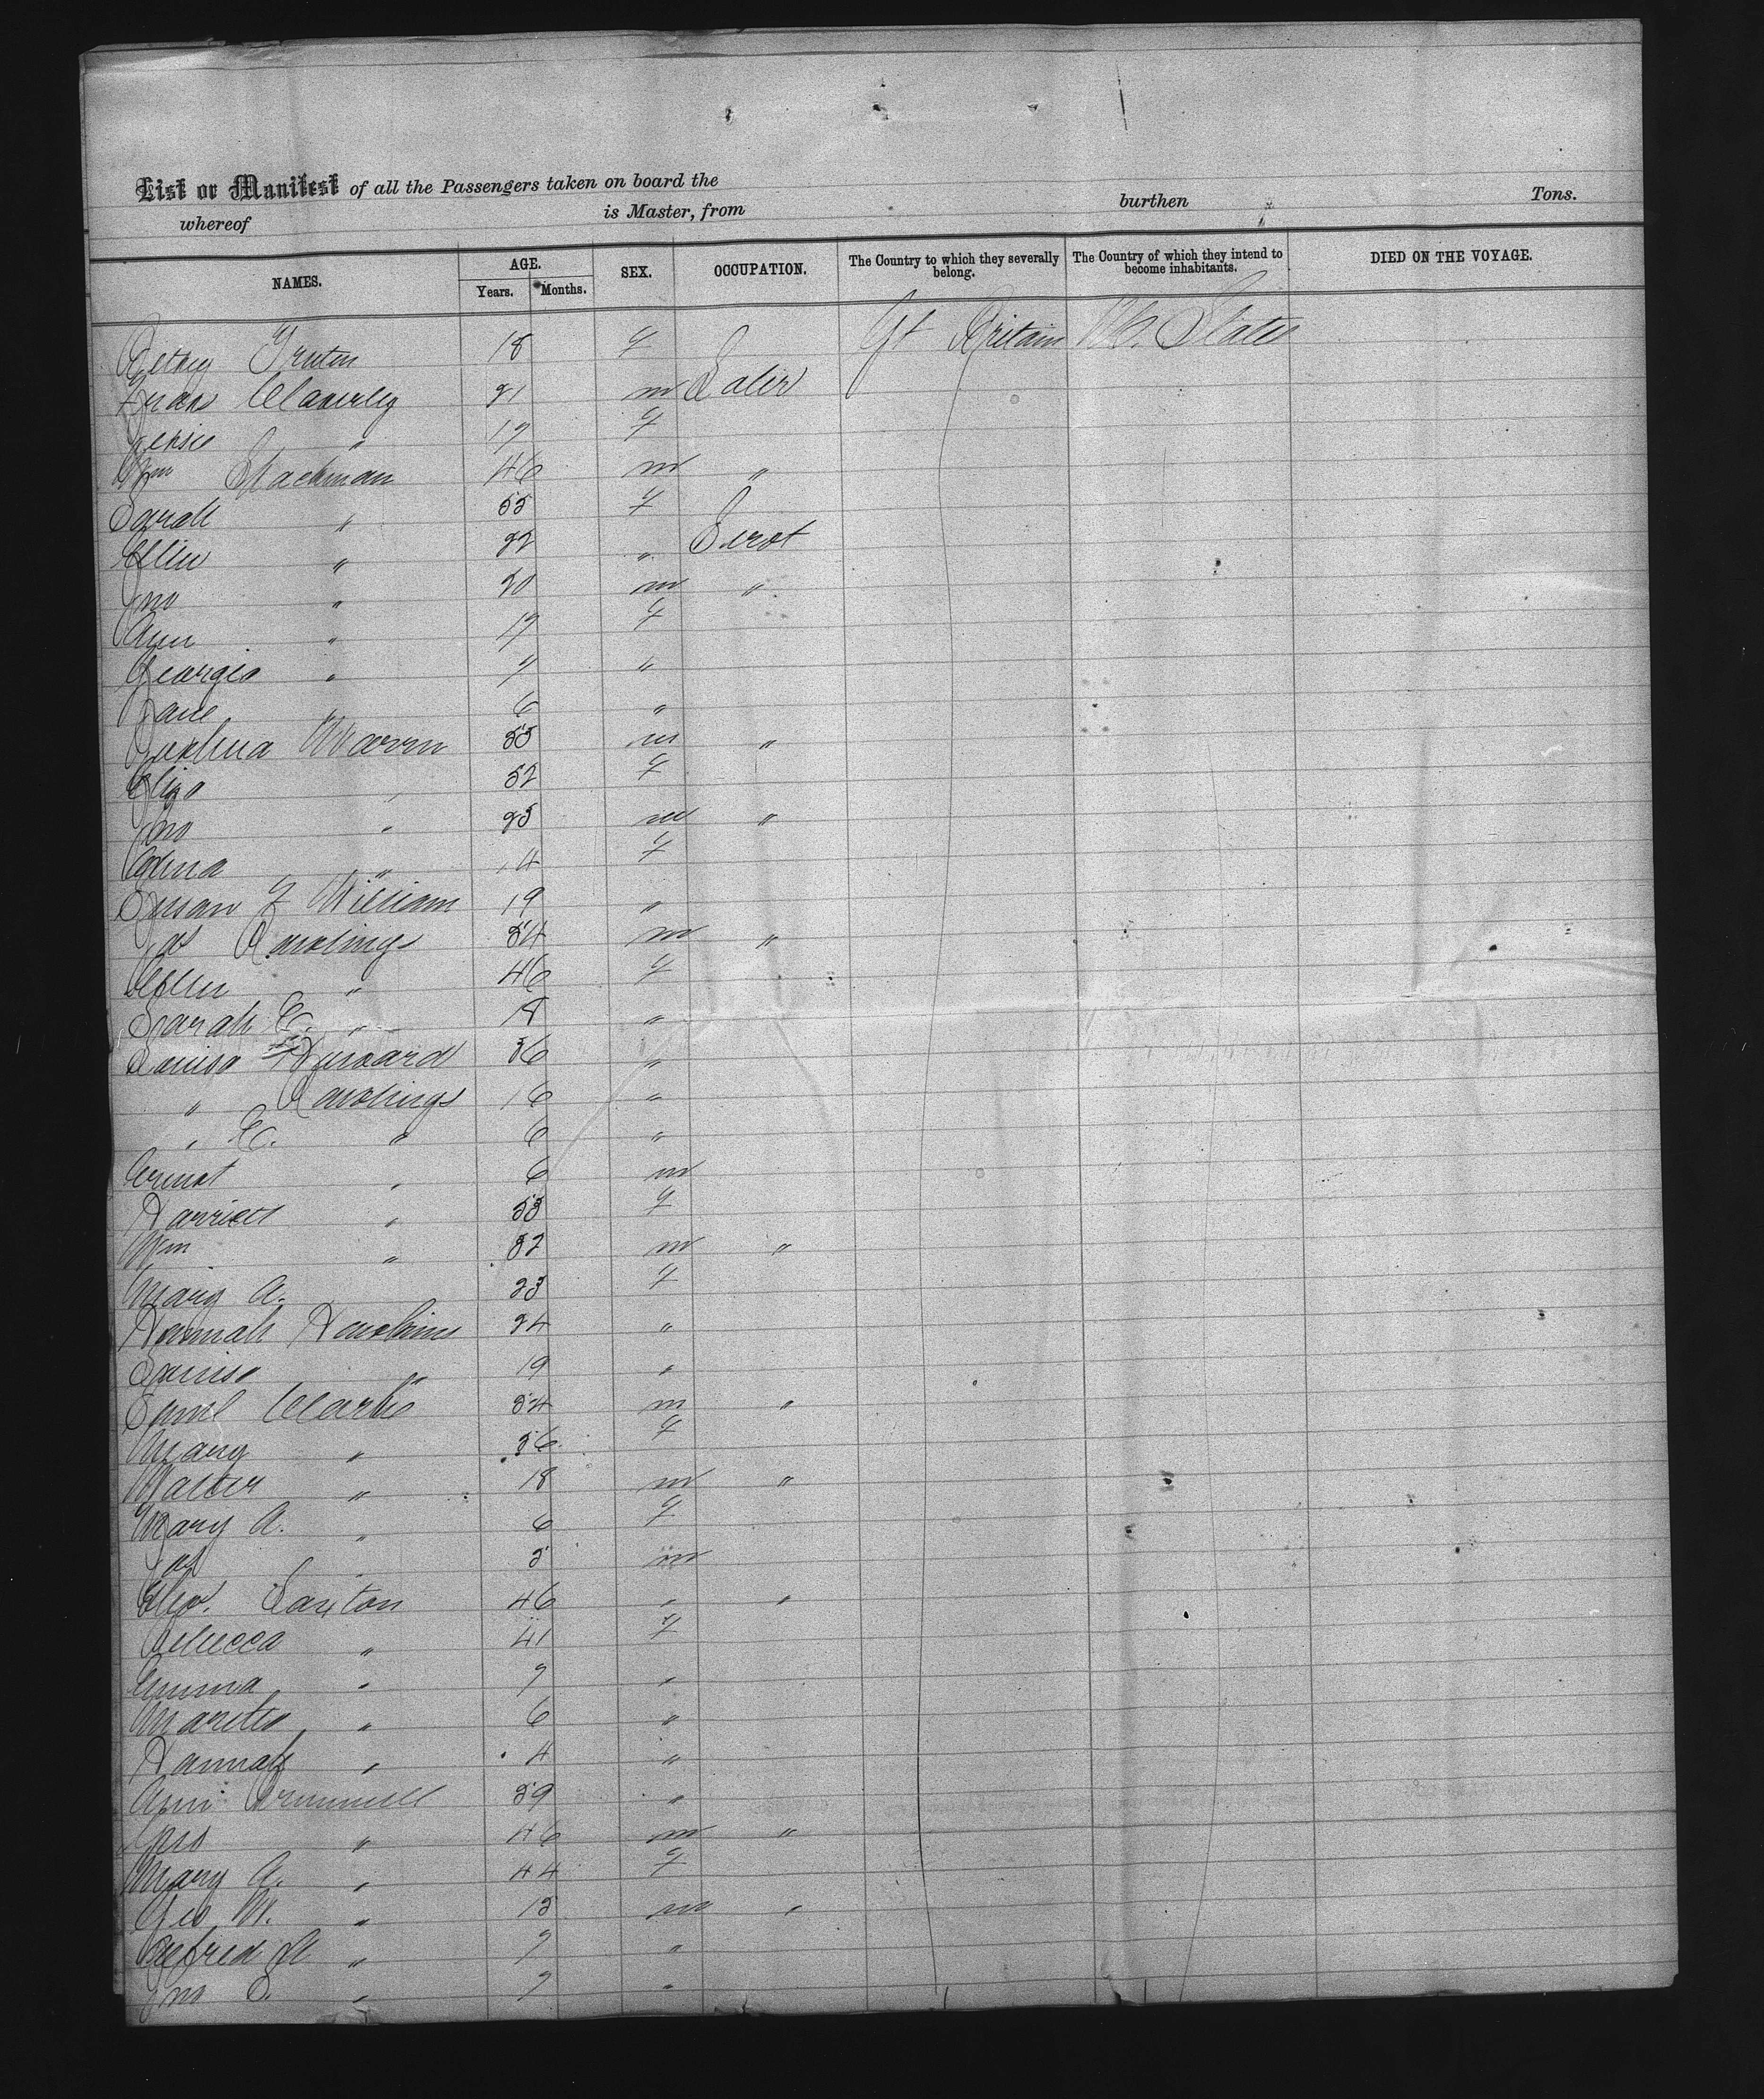 List or Manifest of all the Passengers taken on board the
whereof is Master, from burthen Tons.
NAMES. AGE. SEX. OCCUPATION. The Country to which they severally belong. The Country of which they intend to become inhabitants. DIED ON THE VOYAGE.
Years. Months.
18 f Gt Britain U. States
21 m Labr
Jessie " 17 f
Wm Blackman 46 m "
Sarah " 55 f
Ellen " 22 " Servt
Jno " 20 m "
Ann " 17 f
Georgia " 7 "
Jane 6 "
Joshua Warren 55 m "
Eliza " 52 f
Jno " 25 m "
Edna " 14 f
Susan F William 19 "
Jas Rawlings 54 m "
Ellen " 46 f
Sarah E. " 8 "
Louisa 36 "
" Rawlings 16 "
" E. " 6 "
Ernest " 6 m
Harriett " 33 f
Wm " 32 m "
Mary A. 23 f
Hannah Hawkins 24 "
Louisa " 19 "
Saml Clarke 34 m "
Mary " 36 f
Walter " 18 m "
Mary A. " 6 f
Jas " 5 m
Geo. Saxton 46 " "
Rebecca " 41 f
Emma " 7 "
" 6 "
Hannah " 4 "
Ann 39 "
Jno " 46 m "
Mary A. " 44 f
Geo W. " 15 m "
Alfred " 7 "
Jno S. " 7 "